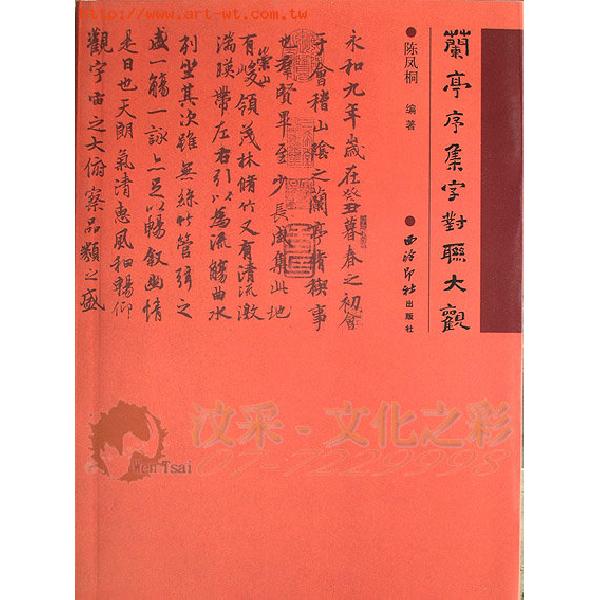 http://www.art-wt.com.tw
蘭亭序集字對聯大觀
陈凤桐 编著
西泠印社出版社
永和九年歲在癸丑暮春之初會
于會稽山陰之蘭亭脩禊事
也羣賢畢至少長咸集此地
有崇山峻領茂林脩竹又有清流激
湍暎帶左右引以為流觴曲水
列坐其次雖無絲竹管弦之
盛一觴一詠亦足以暢敘幽情
是日也天朗氣清惠風和暢仰
觀宇宙之大俯察品類之盛
汶采-文化之彩
07-7229998
Wen Tsai